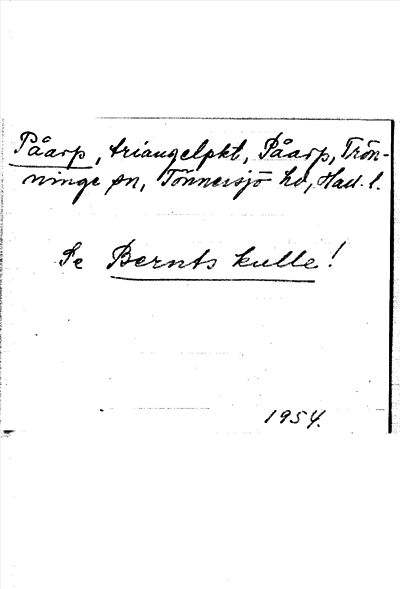 Påarp, triangelpkt, Påarp, Trön-
ninge sn, Tönnersjö hd, Hall. l.
Se Bernts kulle!
1954.